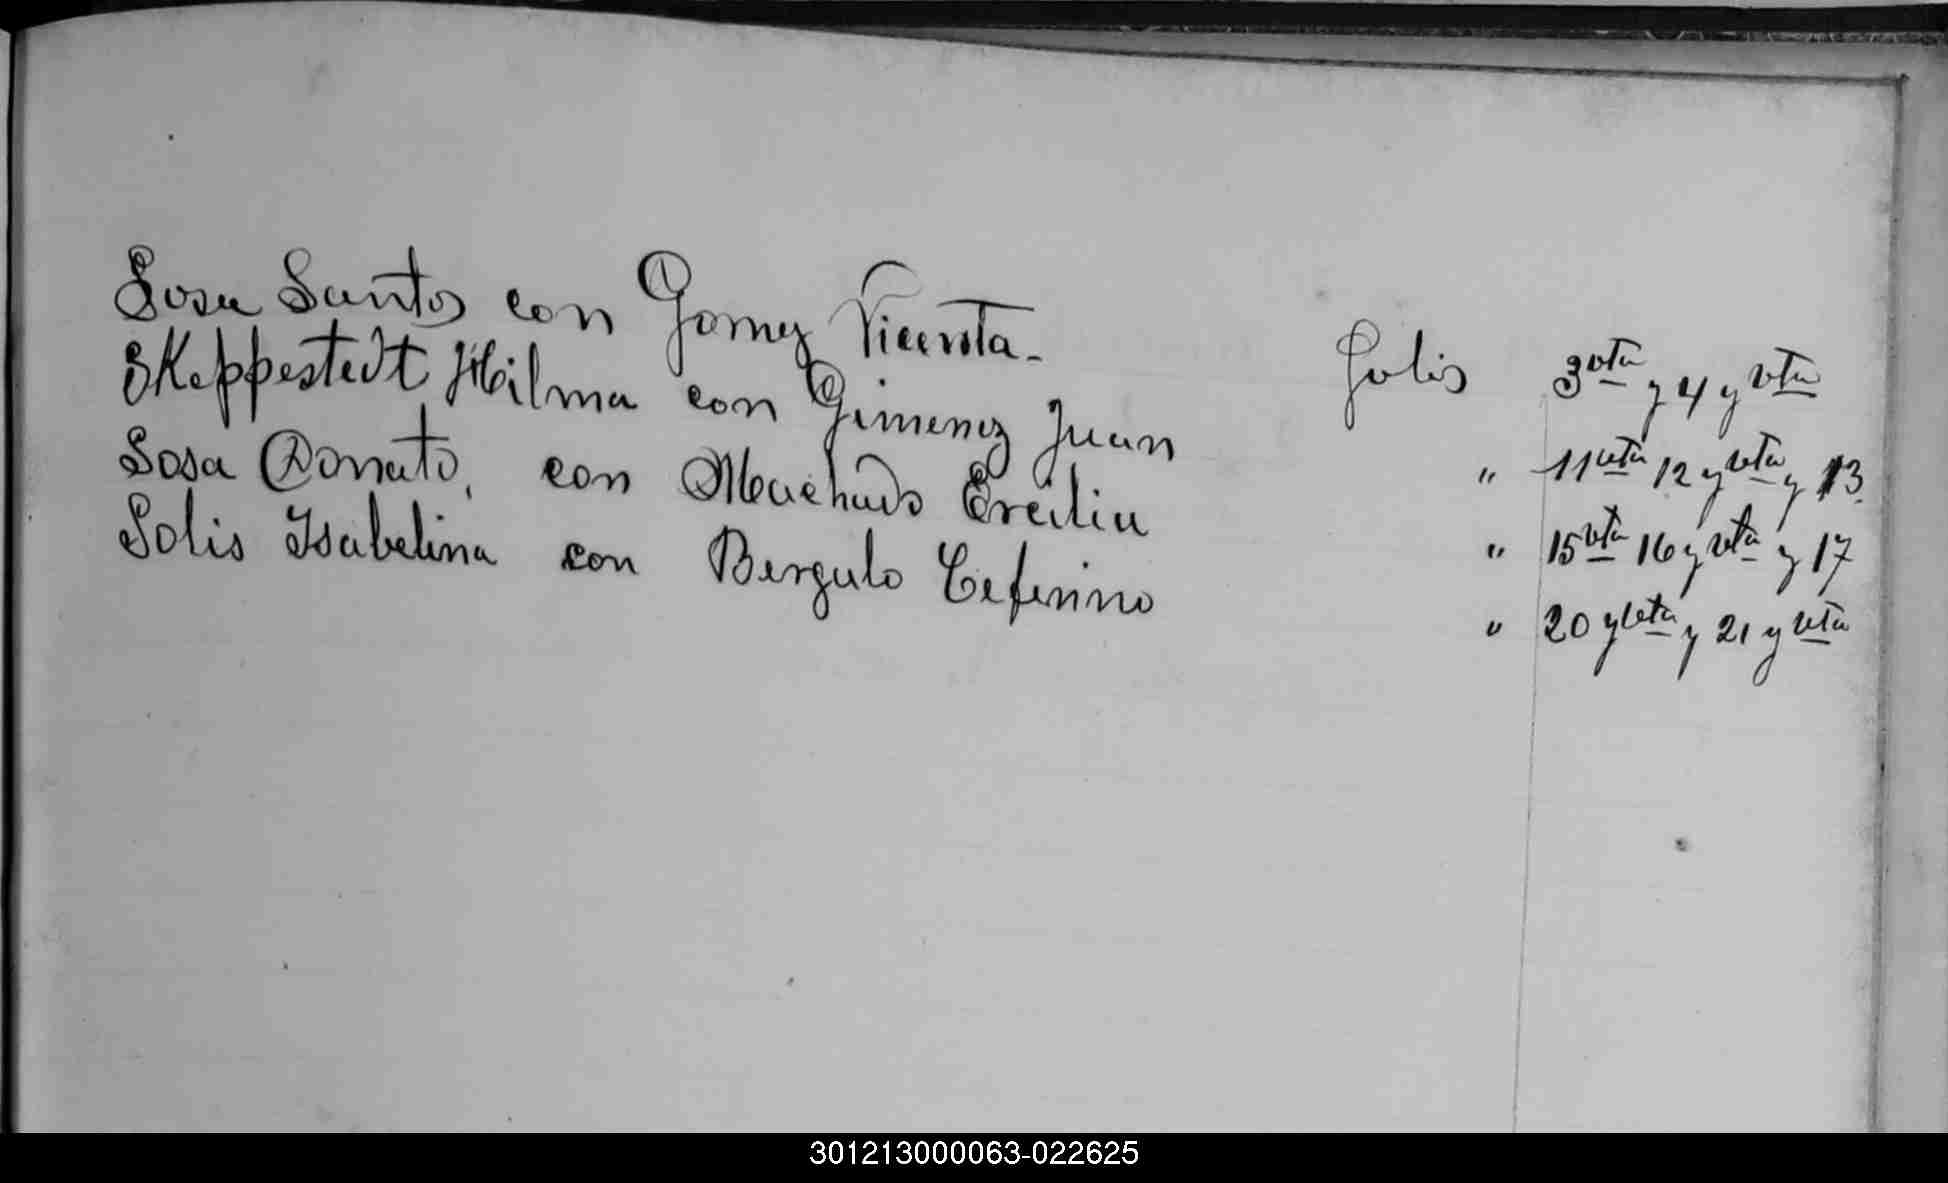 Sosa Santos con Gomez Vicenta. Folis 3 vta y 4 y vta
SKeppestedt Hilma con Gimenez Juan " 11 vta 12 y vta y 13
Sosa Donato, con Machado Ercilia " 15 vta 16 y vta y 17
Solis Isabelina con Bergalo Ceferino " 20 y vta y 21 y vta
301213000063-022625